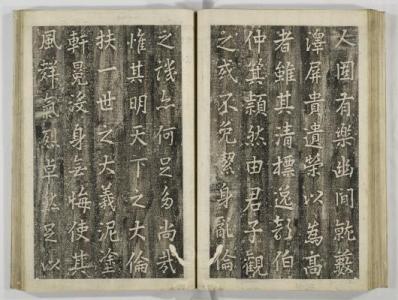 人固有樂幽間就藪
澤屏貴遺榮以為高
者雖其清標逸伯
仲箕潁然由君子觀
之或不免潔身亂倫
之譏亦何足多尚哉
惟其明天下之大倫
扶一世之大義泥塗
軒冕沒身無悔使其
風聲氣烈卓然足以